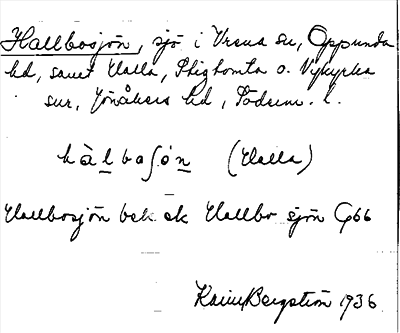 Hallbosjön, sjö i Vrena sn, Oppunda
hd, samt Halla, Stigtomta o. Vrkyrka
snr, Jönåkers hd, Söderm. l.
hàlbaʃön (Halla)
Hallbosjön bek ek Hallbo sjön G66
Karin Bergström 1936